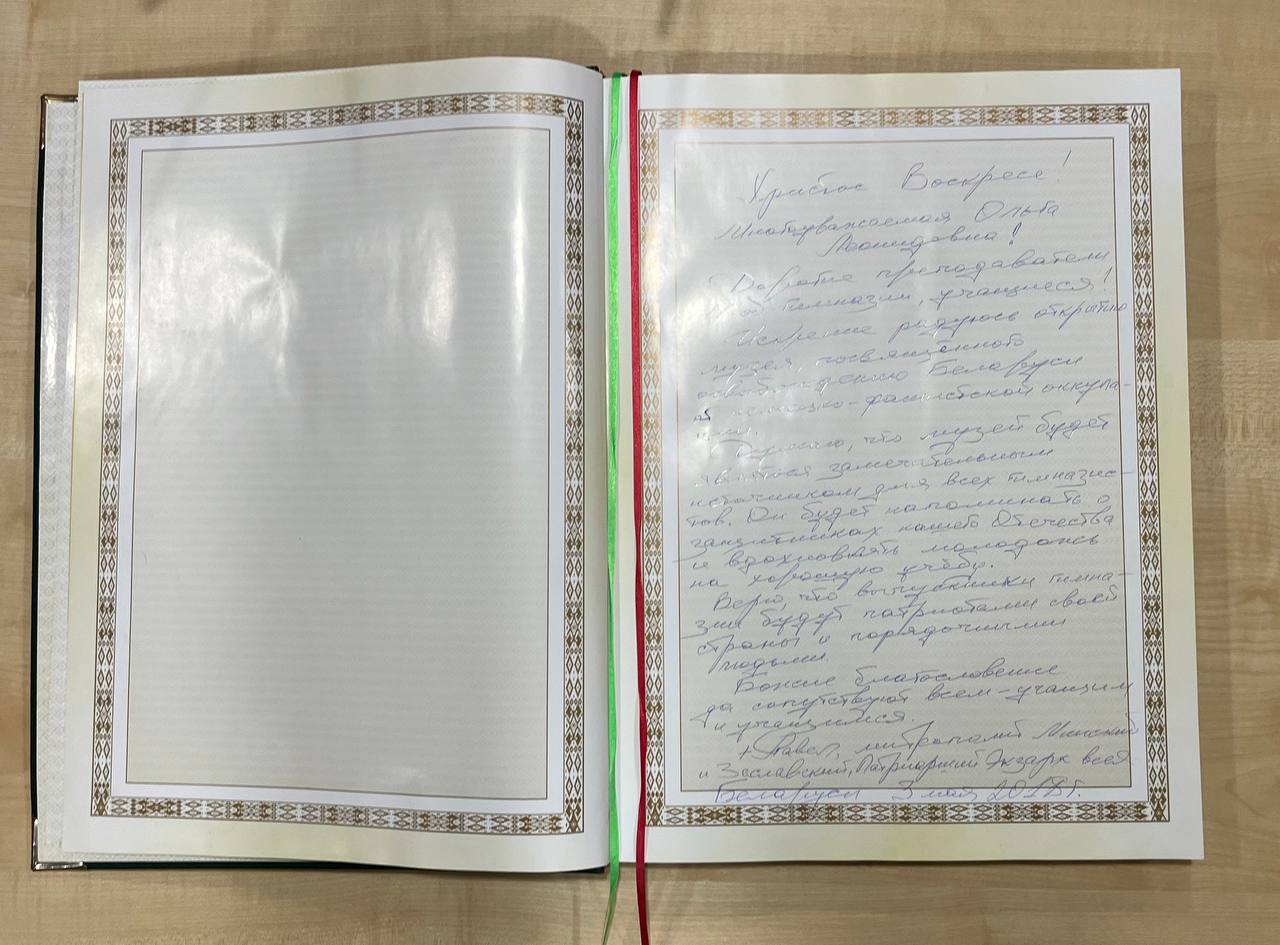 Христос Воскресе!
Многоуважаемая Ольга
Леонидовна!
Дорогие преподаватели
гимназии, учащиеся!
Искренне радуюсь открытию
музея, посвящённого
освобождению Беларуси
от немецко-фашистской оккупа-
ции.
Думаю, что музей будет
являться замечательным
источником для всех гимназис-
тов. Он будет напоминать о
защитниках нашего Отечества
и вдохновлять молодёжь
на хорошую учёбу.
Верю, что выпускники гимна-
зии будут патриотами своей
страны и порядочными
людьми.
Божие благословение
да сопутствует всем - учащим
и учащимся.
+ Павел, митрополит Минский
и Заславский, Патриарший Экзарх всея
Беларуси 3 мая 2018 г.